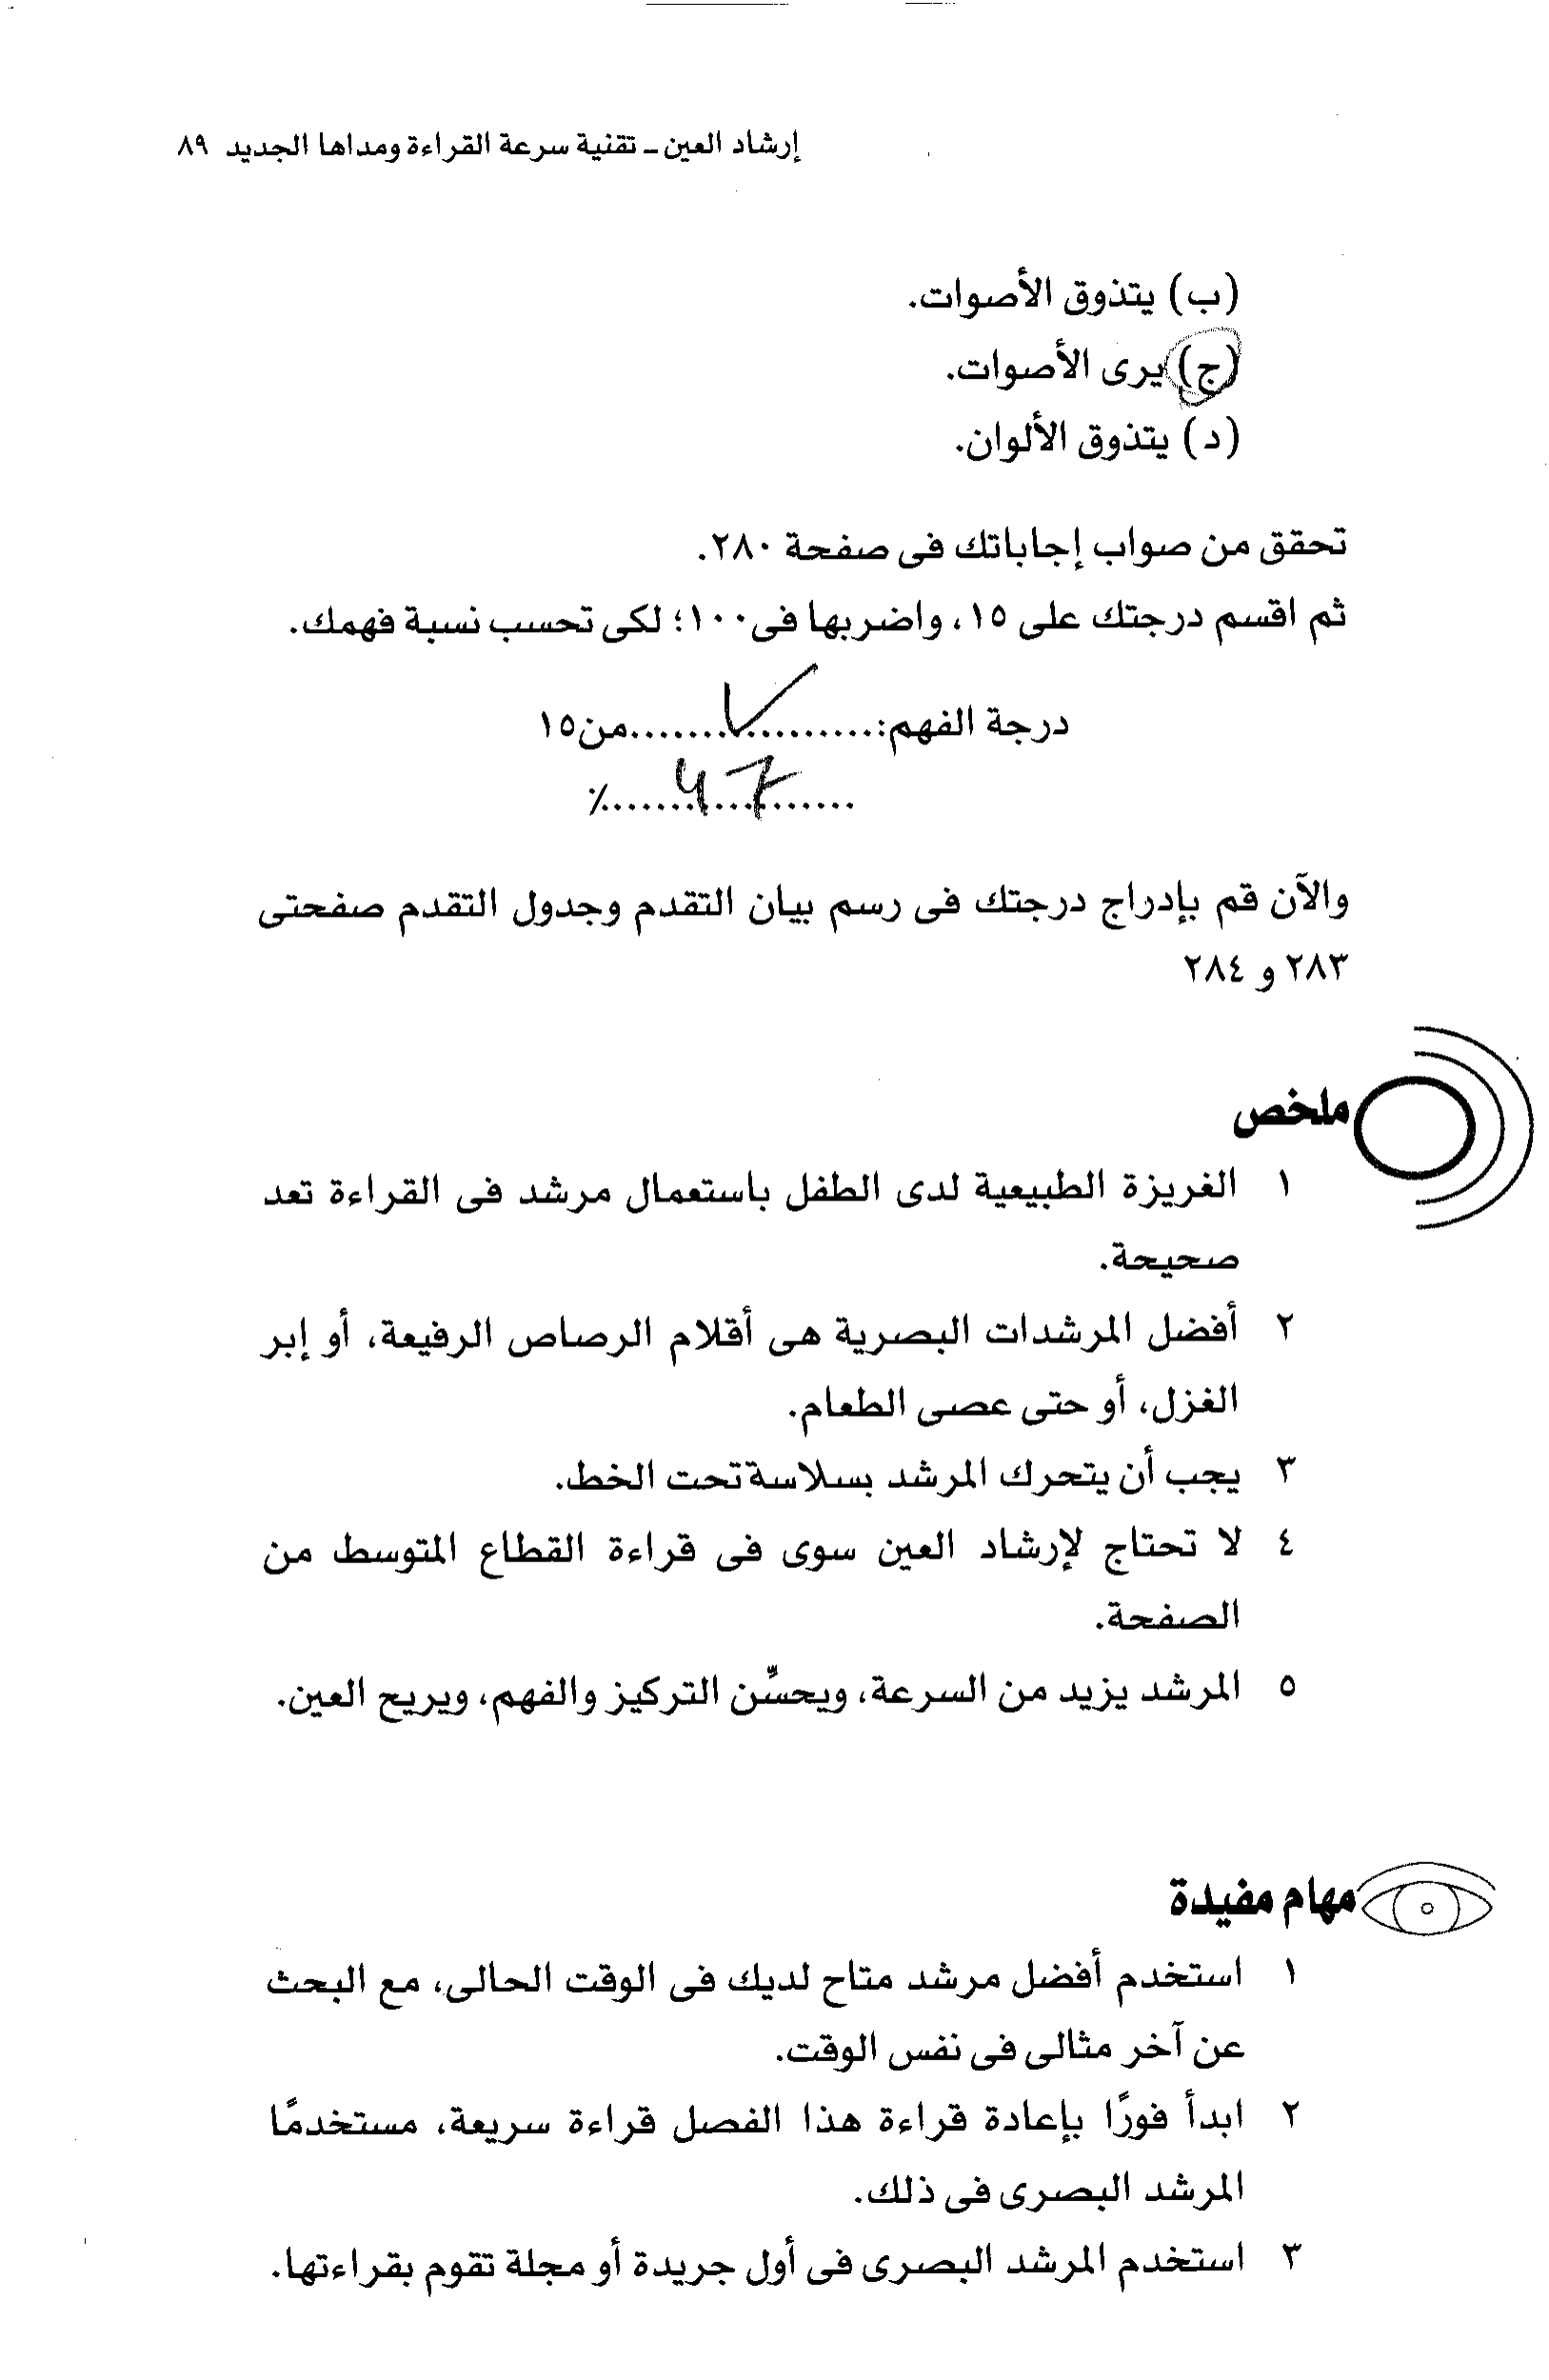 إرشاد العين ــ تقنية سرعة القراءة ومداها الجديد ٨٩
(ب) يتذوق الأصوات.
(ج) يرى الأصوات.
(د) يتذوق الألوان.
تحقق من صواب إجاباتك فى صفحة ٢٨٠.
ثم اقسم درجتك على ١٥، واضربها فى١٠٠؛ لكى تحسب نسبة فهمك.
درجة الفهم:..........٧........من١٥
......47.......٪
والآن قم بإدراج درجتك فى رسم بيان التقدم وجدول التقدم صفحتى
٢٨٣ و ٢٨٤
ملخص
١ الغريزة الطبيعية لدى الطفل باستعمال مرشد فى القراءة تعد
صحيحة.
٢ أفضل المرشدات البصرية هى أقلام الرصاص الرفيعة، أو إبر
الغزل، أو حتى عصى الطعام.
٣ يجب أن يتحرك المرشد بسلاسة تحت الخط.
٤ لا تحتاج لإرشاد العين سوى فى قراءة القطاع المتوسط من
الصفحة.
٥ المرشد يزيد من السرعة، ويحسِّن التركيز والفهم، ويريح العين.
مهام مفيدة
١ استخدم أفضل مرشد متاح لديك فى الوقت الحالى، مع البحث
عن آخر مثالى فى نفس الوقت.
٢ ابدأ فورًا بإعادة قراءة هذا الفصل قراءة سريعة، مستخدمًا
المرشد البصرى فى ذلك.
٣ استخدم المرشد البصرى فى أول جريدة أو مجلة تقوم بقراءتها.